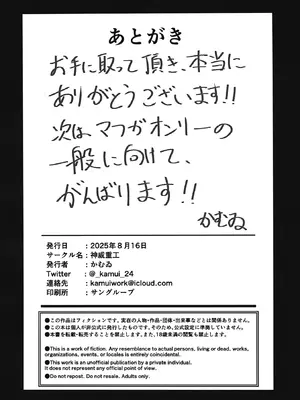 あとがき
お手に取って頂き、本当に
ありがとうございます!!
次はマフガオンリーの
一般に向けて、
がんばります!!
かむゐ
発行日 : 2025年8月16日
サークル名 : 神威重工
発行者 : かむゐ
Twitter : @_kamui_24
連絡先 : kamuiwork@icloud.com
印刷所 : サングループ
●この作品はフィクションです。実在の人物・作品・団体・出来事などとは関係ありません。
●この本は個人が非公式に発行したものです。そのため、公式設定に準拠していません。
●本書を転載・転売することを禁止します。また、18歳未満の閲覧も禁止します。
●This is a work of fiction. Any resemblance to actual persons, living or dead, works,
organizations, events, or locales is entirely coincidental.
●This is an unofficial publication by a private individual.
It does not represent any official point of view.
●Do not repost. Do not resale. Adults only.